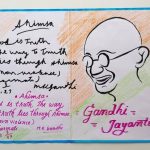 Ahimsa
God is Truth
The way to Truth
lies through ahimsa
(non violence)
Ahimsa
God is truth the way
to truth lies through ahimsa
(non violence)
M.K. Gandhi
Gandhi
Jayanti